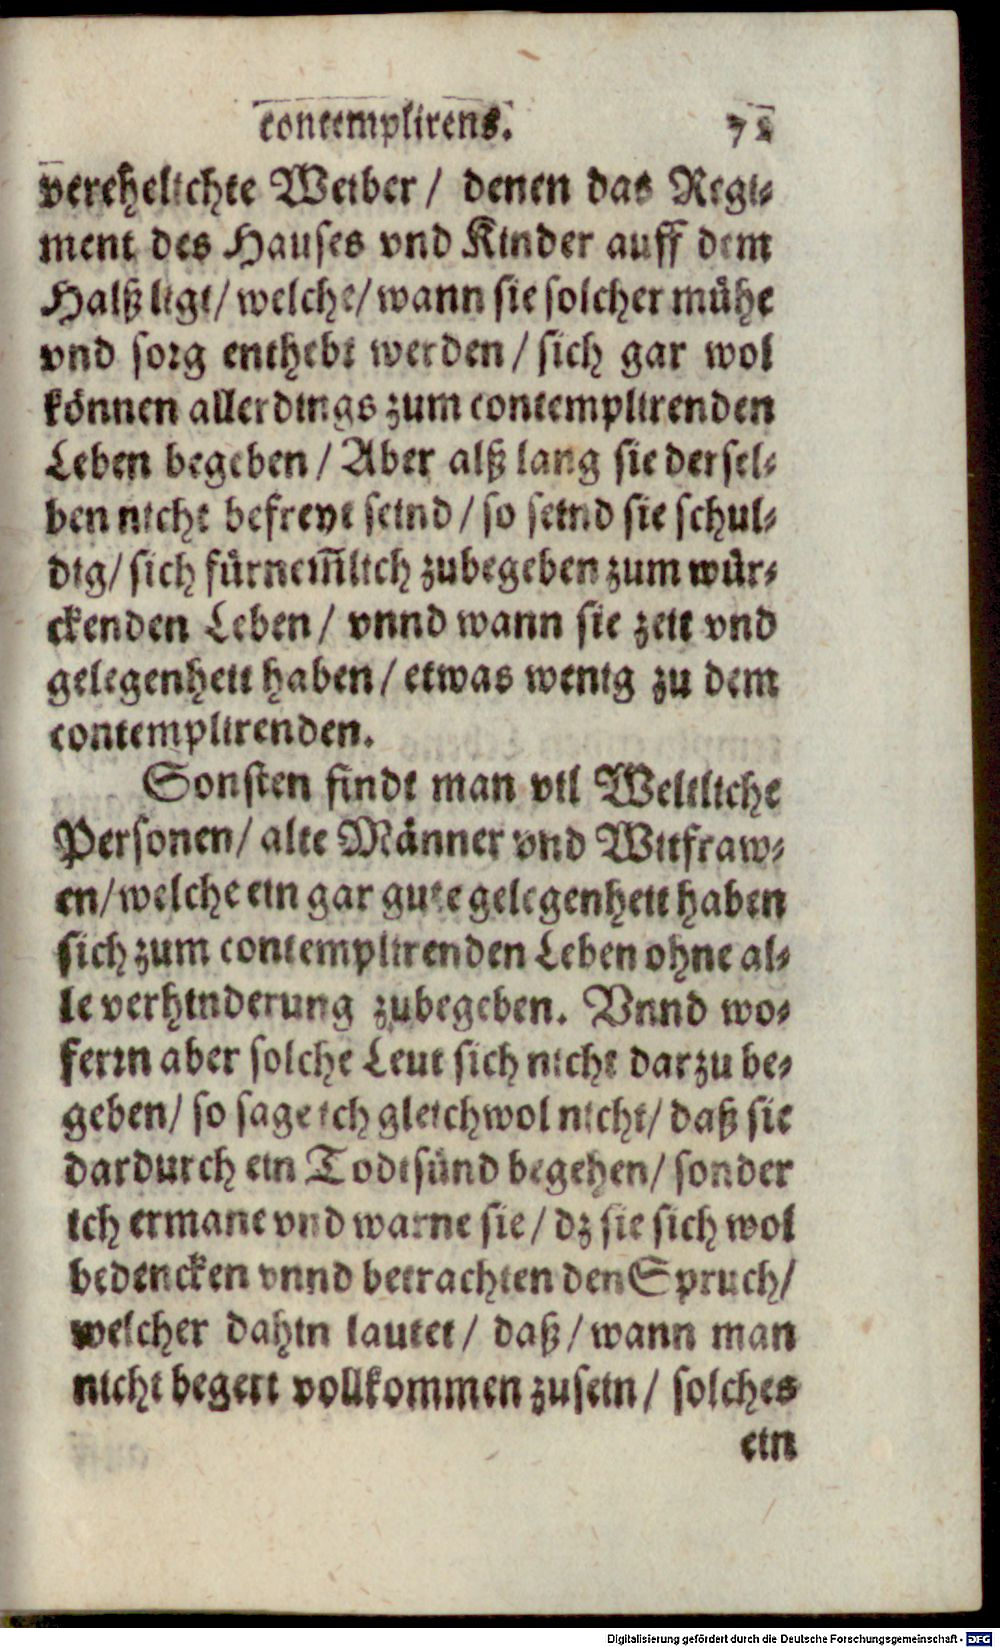 contemplirens. 72
verehelichte Weiber / denen das Regi-
ment des Hauses vnd Kinder auff dem
Halß ligt / welche / wann sie solcher mühe
vnd sorg enthebt werden / sich gar wol
können allerdings zum contemplirenden
Leben begeben / Aber alß lang sie dersel-
ben nicht befreyt seind / so seind sie schul-
dig / sich fürnem̃lich zubegeben zum wür-
ckenden Leben / vnnd wann sie zeit vnd
gelegenheit haben / etwas wenig zu dem
contemplirenden.
Sonsten findt man vil Weltliche
Personen / alte Männer vnd Witfraw-
en / welche ein gar gute gelegenheit haben
sich zum contemplirenden Leben ohne al-
le verhinderung zubegeben. Vnnd wo-
ferrn aber solche Leut sich nicht darzu be-
geben / so sage ich gleichwol nicht / daß sie
dardurch ein Todtsünd begehen / sonder
ich ermane vnd warne sie / dz sie sich wol
bedencken vnnd betrachten den Spruch /
welcher dahin lautet / daß / wann man
nicht begert vollkommen zusein / solches
ein
Digitalisierung gefördert durch die Deutsche Forschungsgemeinschaft - DFG